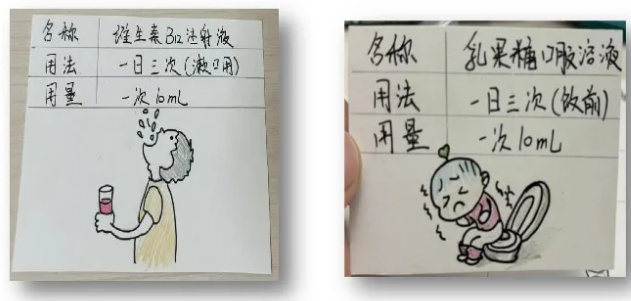 名称 维生素B12注射液
用法 一日三次(漱口用)
用量 一次10mL
名称 乳果糖口服溶液
用法 一日三次(饭前)
用量 一次10mL